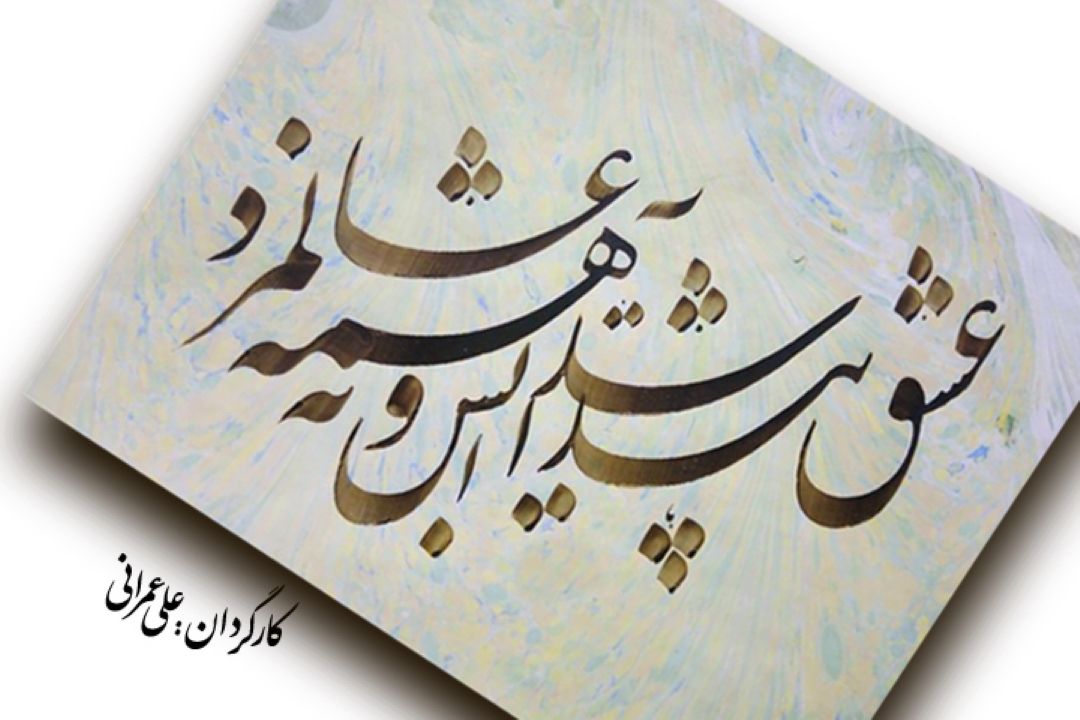 عشق پیدا شد و آتش به همه عالم زد
کارگردان علی عمرانی